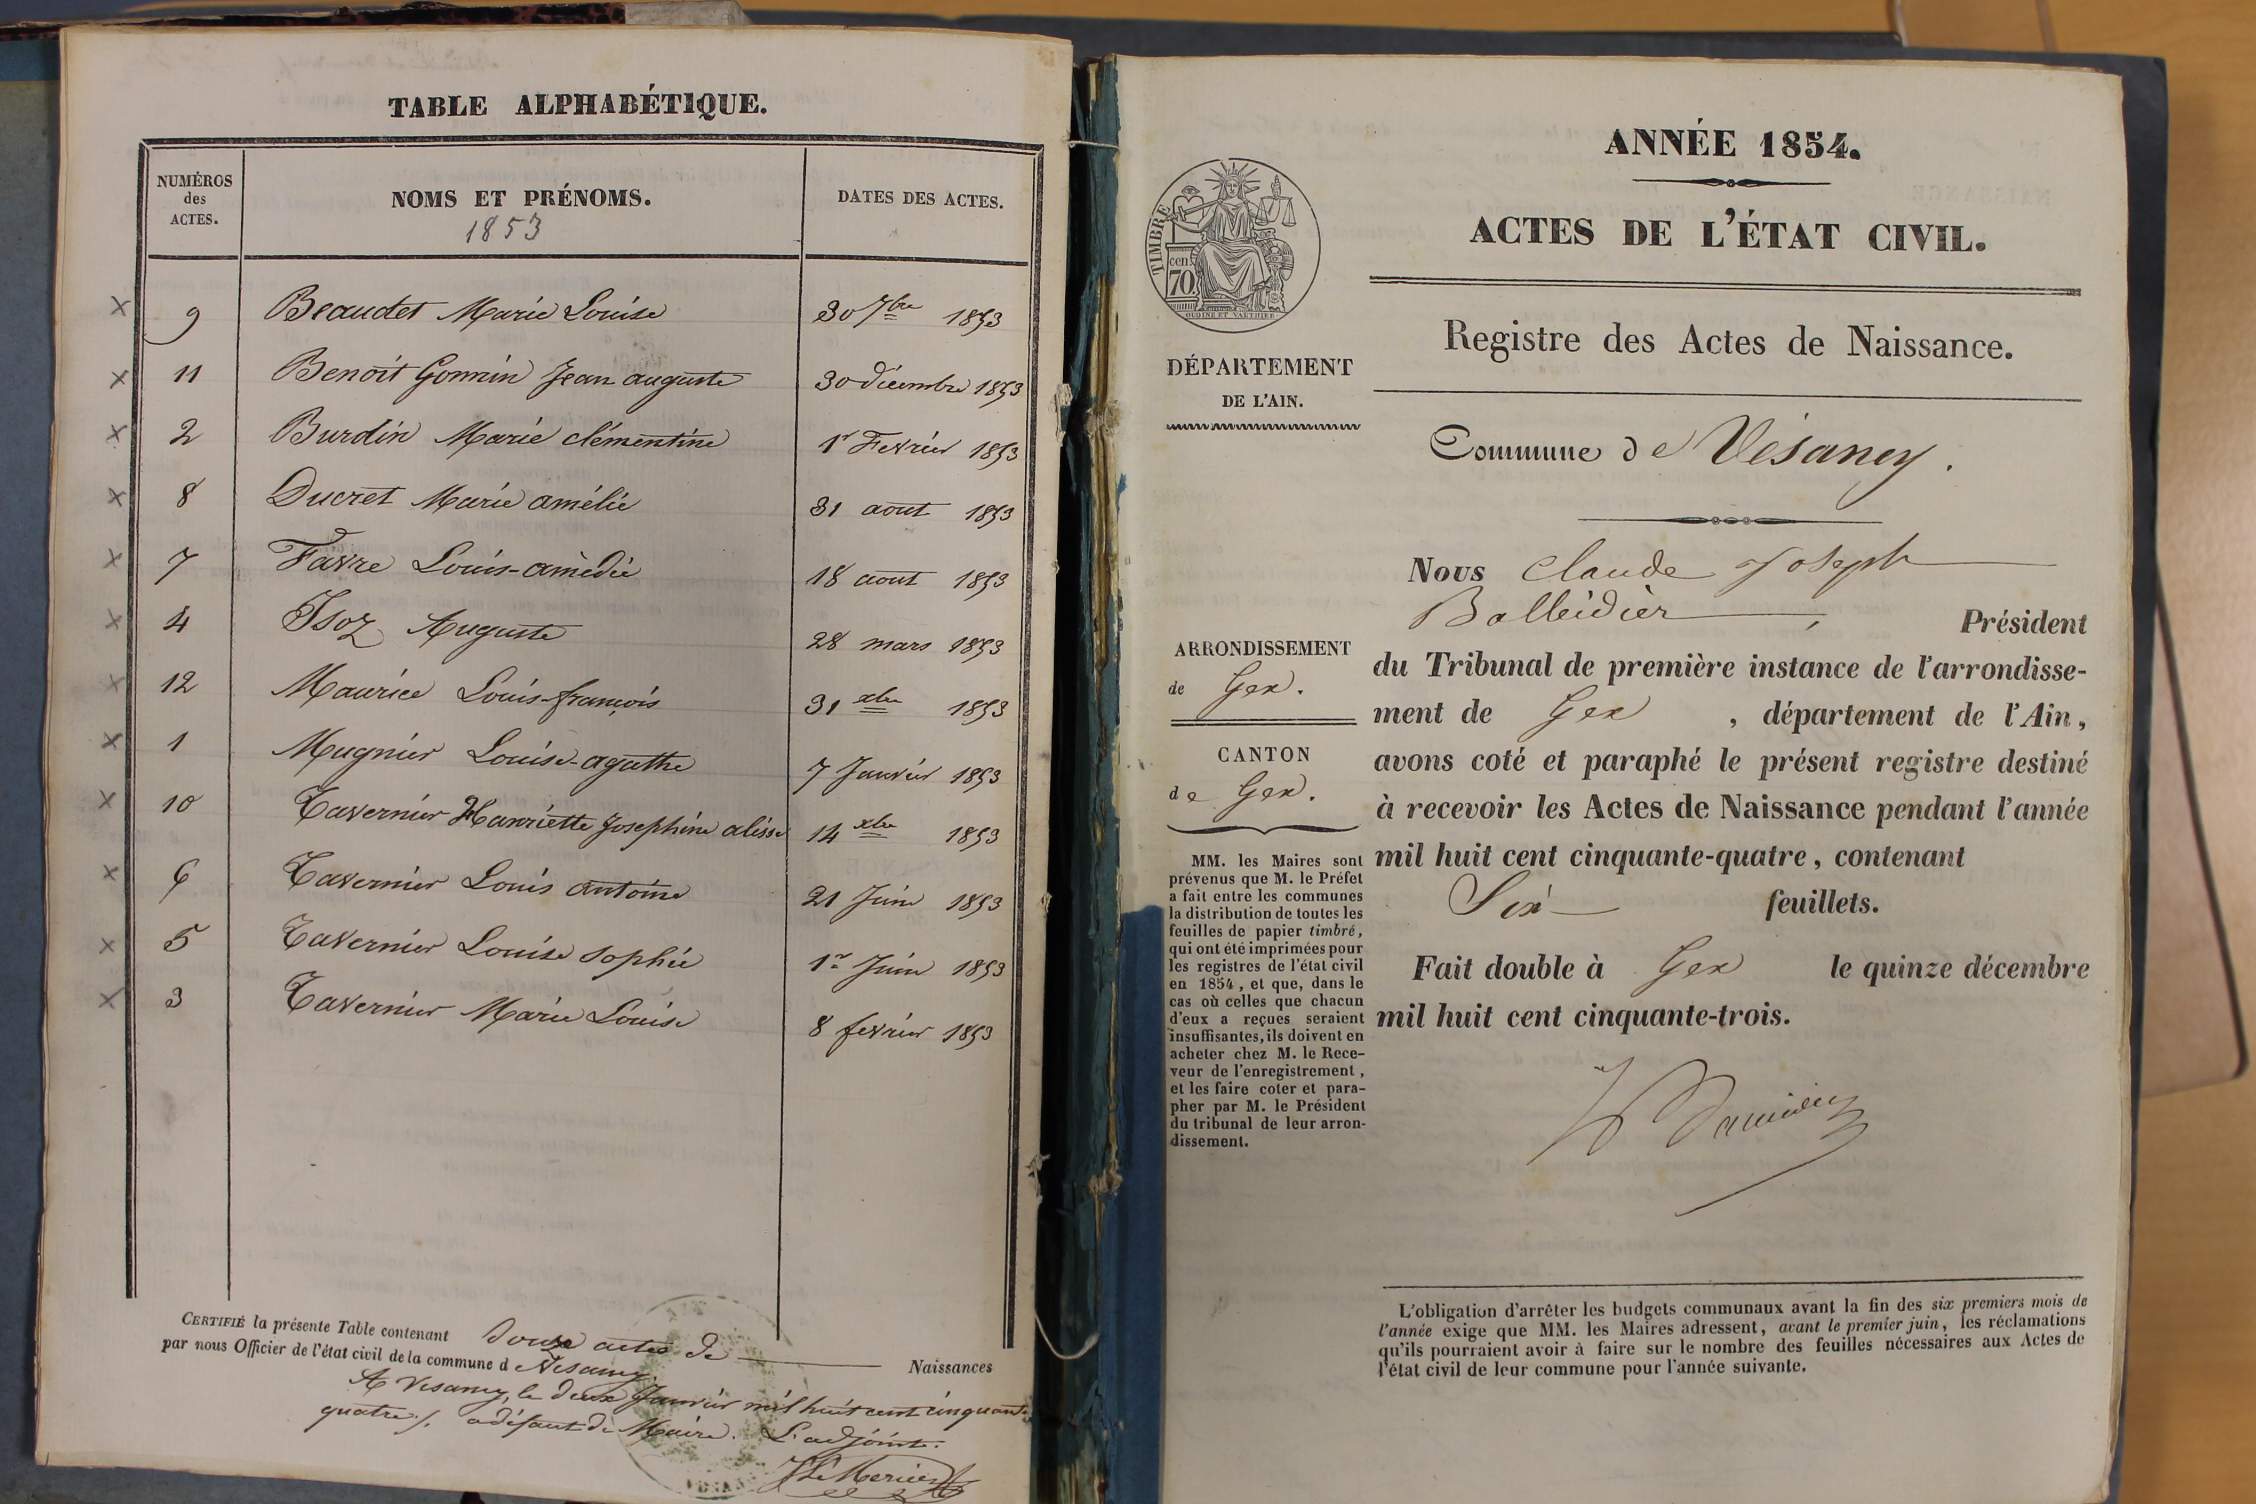 TABLE ALPHABÉTIQUE.
NUMÉROS
des
ACTES.
NOMS ET PRÉNOMS.
1853
DATES DES ACTES.
9 Beaudet Marie Louise 30 7bre 1853
11 Benoit Gonnin Jean auguste 30 décembre 1853
2 Burdin Marie clémentine 1r Fevrier 1853
8 Ducret Marie amélie 31 aout 1853
7 Favre Louis-amèdée 18 aout 1853
4 Isoz Auguste 28 mars 1853
12 Maurice Louis-françois 31 xbre 1853
1 Mugnier Louise-agathe 7 Janvier 1853
10 Tavernier Henriette Josephine alisse 14 xbre 1853
6 Tavernier Louis antoine 21 Juin 1853
5 Tavernier Louise sophie 1r Juin 1853
3 Tavernier Marie Louise 8 fevrier 1853
CERTIFIÉ la présente Table contenant douze actes de Naissances
par nous Officier de l'état civil de la commune d Vesancy.
A Vesancy, le deux Janvier mil huit cent cinquante
quatre. a défaut de Maire. L'adjoint.
ANNÉE 1854.
ACTES DE L'ÉTAT CIVIL.
TIMBRE
cen.
70
OUDINÉ ET VAUTHIER
Registre des Actes de Naissance.
DÉPARTEMENT
DE L'AIN.
Commune de Vésancy.
Nous Claude Joseph
Balleidier, Président
du Tribunal de première instance de l'arrondisse-
ment de Gex, département de l'Ain,
avons coté et paraphé le présent registre destiné
à recevoir les Actes de Naissance pendant l'année
mil huit cent cinquante-quatre, contenant
Six feuillets.
Fait double à Gex le quinze décembre
mil huit cent cinquante-trois.
ARRONDISSEMENT
de Gex.
CANTON
de Gex.
MM. les Maires sont
prévenus que M. le Préfet
a fait entre les communes
la distribution de toutes les
feuilles de papier timbré,
qui ont été imprimées pour
les registres de l'état civil
en 1854, et que, dans le
cas où celles que chacun
d'eux a reçues seraient
insuffisantes, ils doivent en
acheter chez M. le Rece-
veur de l'enregistrement,
et les faire coter et para-
pher par M. le Président
du tribunal de leur arron-
dissement.
L'obligation d'arrêter les budgets communaux avant la fin des six premiers mois de
l'année exige que MM. les Maires adressent, avant le premier juin, les réclamations
qu'ils pourraient avoir à faire sur le nombre des feuilles nécessaires aux Actes de
l'état civil de leur commune pour l'année suivante.